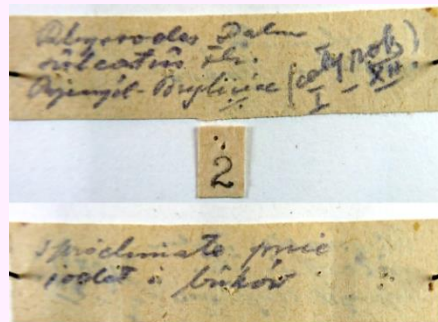 Rhysodes Dalm
sulcatus Fb.
Przemyśl-Brylińce (cały rok)
I – XII
2
spróchniałe pnie
jodeł i buków